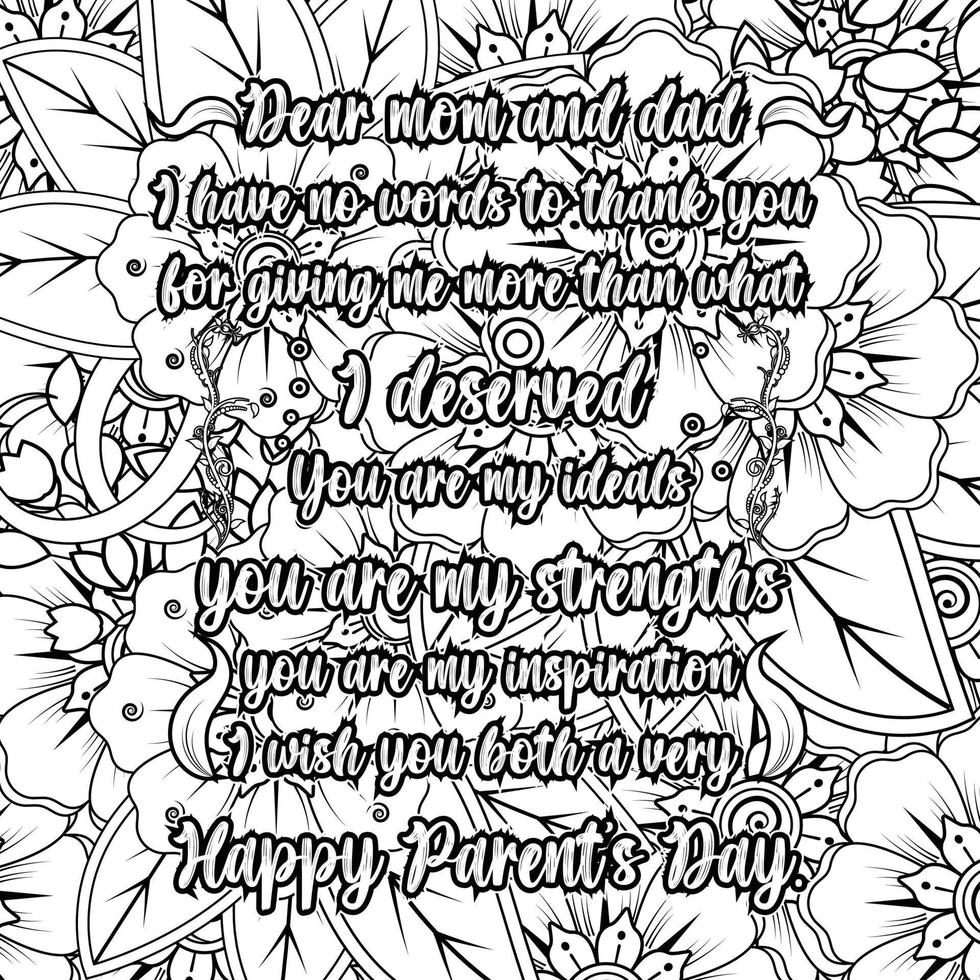 Dear mom and dad
I have no words to thank you
for giving me more than what
I deserved
You are my ideals
you are my strengths
you are my inspiration
I wish you both a very
Happy Parent's Day.